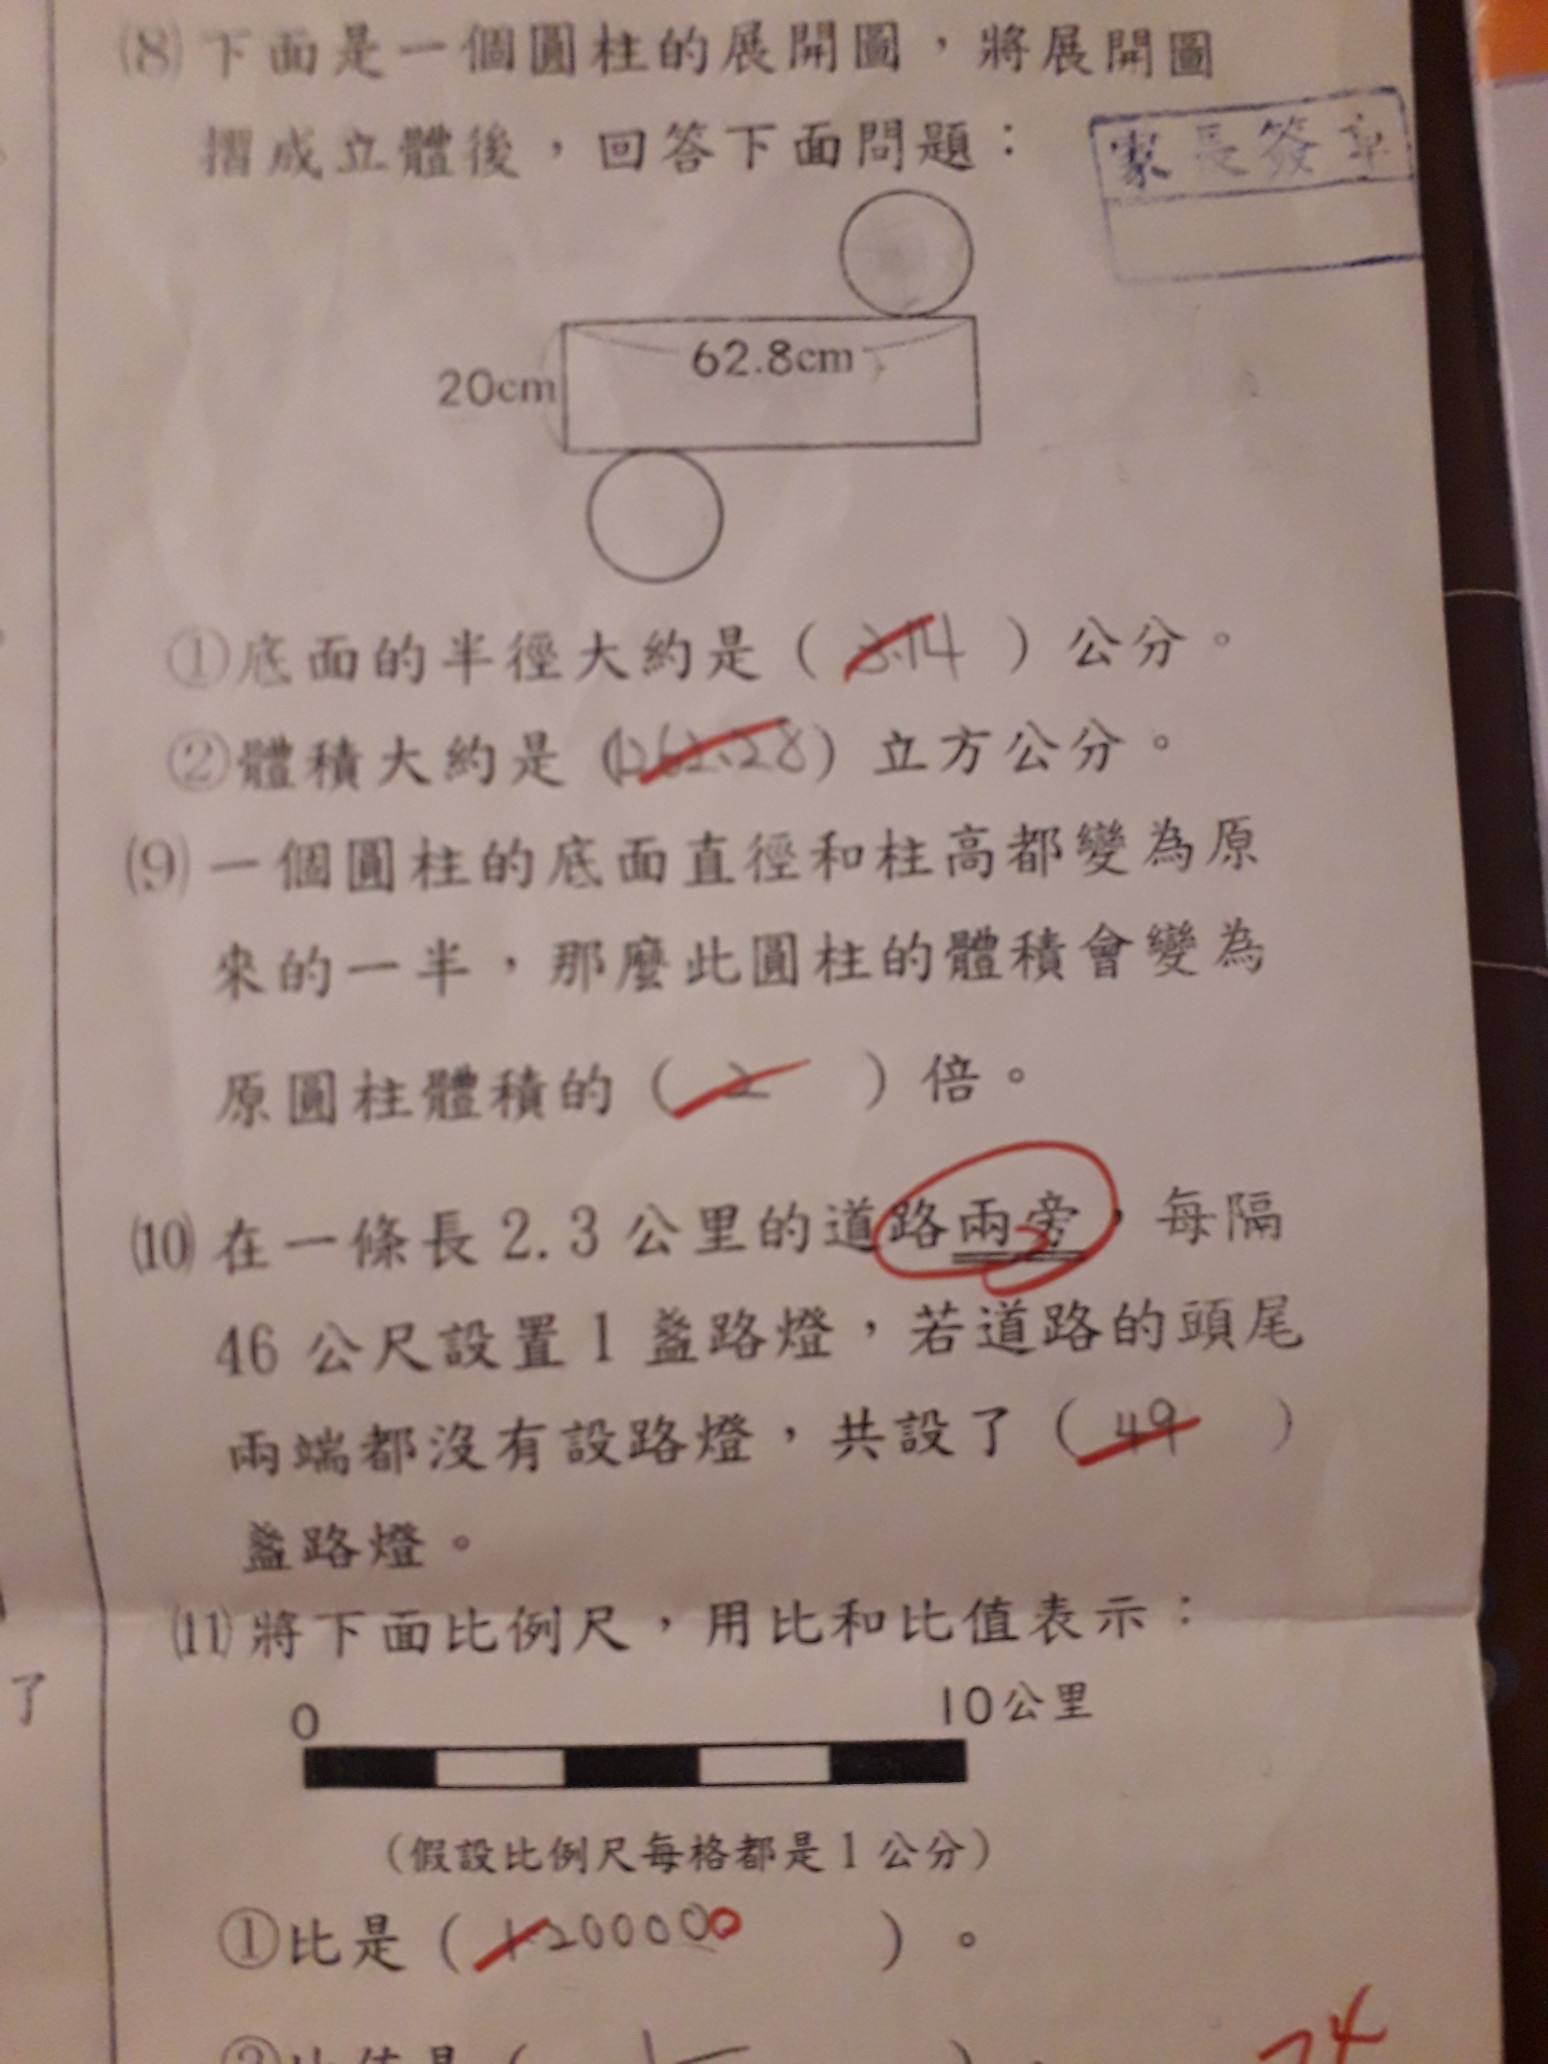 (8)下面是一個圓柱的展開圖，將展開圖
摺成立體後，回答下面問題：
家長簽章
62.8cm
20cm
①底面的半徑大約是（3.14）公分。
②體積大約是（1262.28）立方公分。
(9)一個圓柱的底面直徑和柱高都變為原
來的一半，那麼此圓柱的體積會變為
原圓柱體積的（2）倍。
(10)在一條長2.3公里的道路兩旁，每隔
46公尺設置1盞路燈，若道路的頭尾
兩端都沒有設路燈，共設了（49）
盞路燈。
(11)將下面比例尺，用比和比值表示：
了
0
10公里
（假設比例尺每格都是1公分）
①比是（1:200000）。